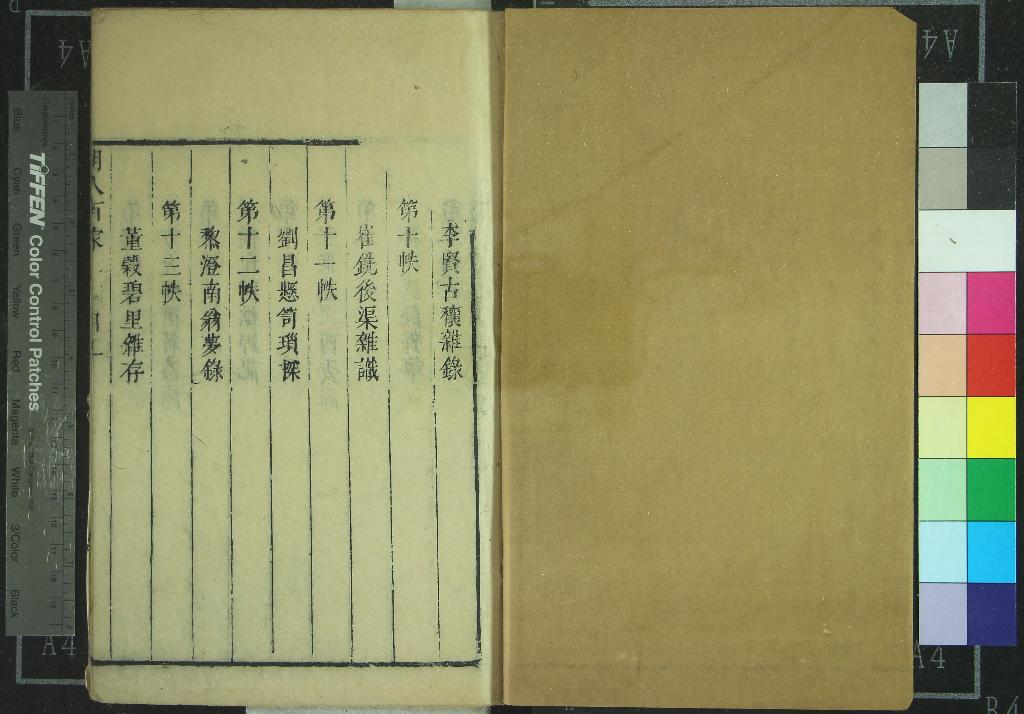 李賢古穰雜錄
第十帙
崔鏡後渠雜識
第十一帙
劉昌懸笥瑣探
第十二帙
黎澄南翁夢錄
第十三帙
董穀碧里雜存
TIFFEN Color Control Patches
Blue
Cyan
Green
Yellow
Red
Magenta
White
3/Color
Black
Centimetres
A4
A4
A4
A4